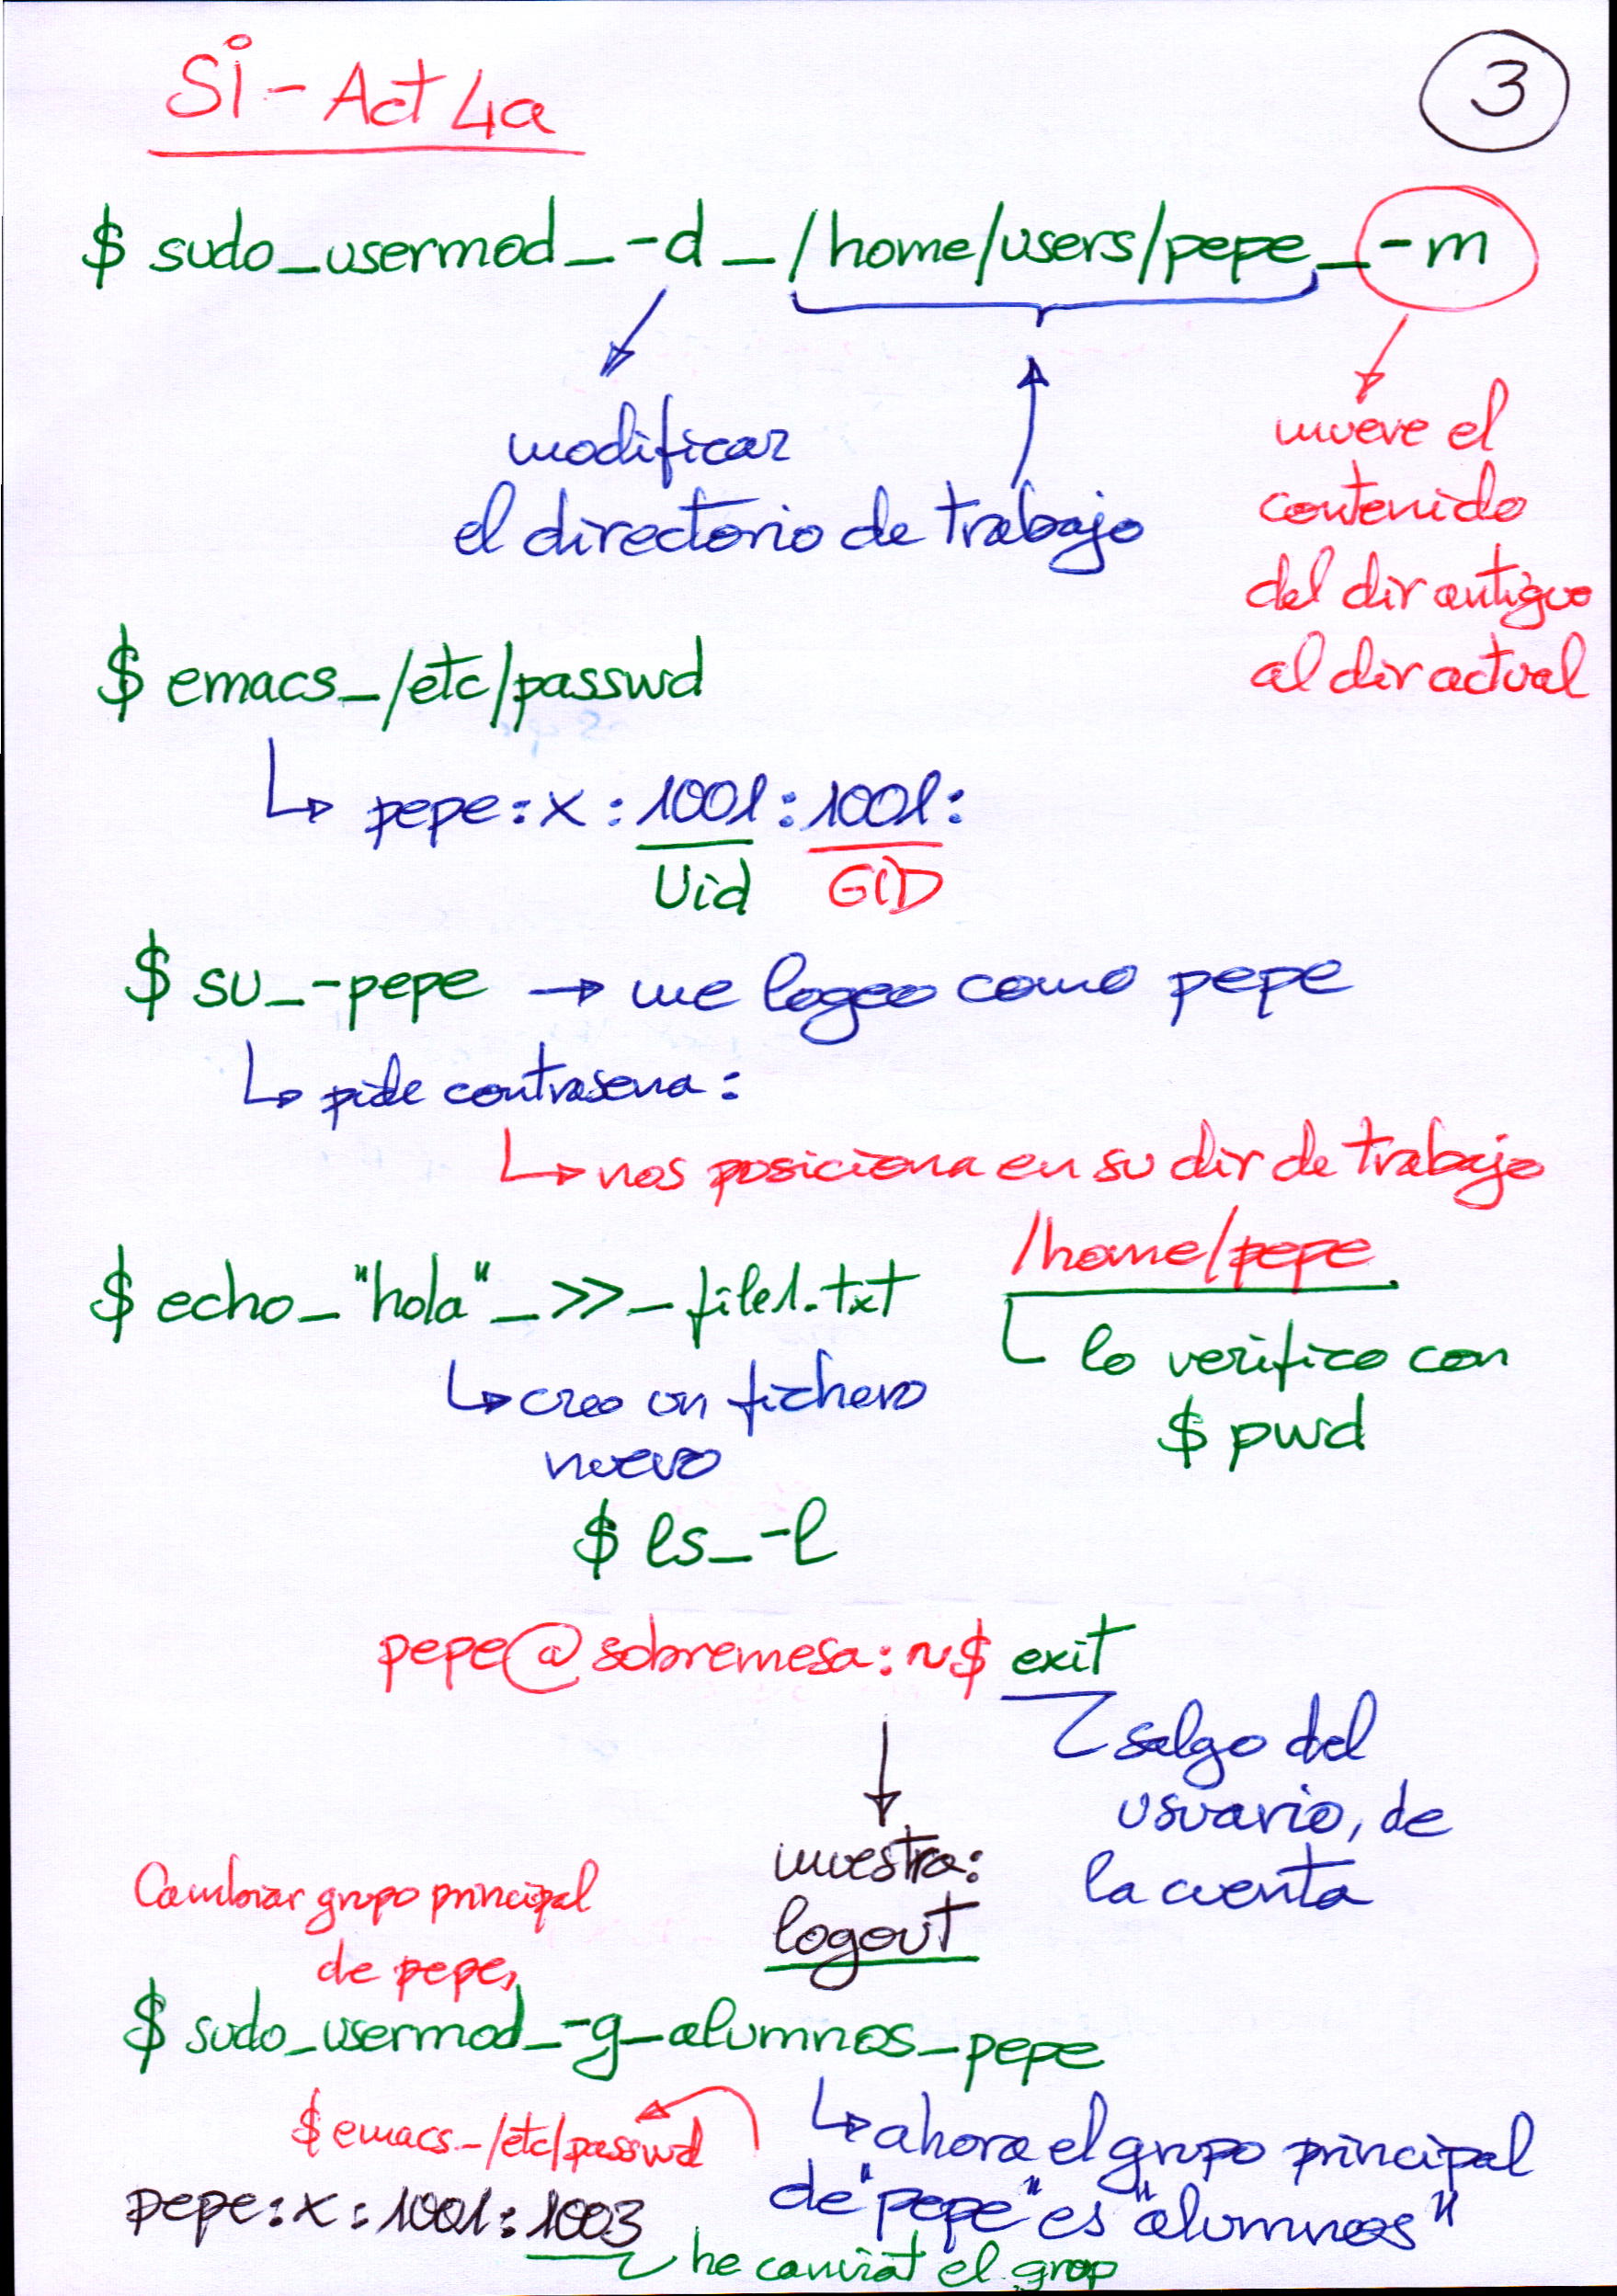 Si - Act 4a
3
$ sudo_usermod_-d_/home/users/pepe_-m
modificar
el directorio de trabajo
mueve el
contenido
del dir antiguo
al dir actual
$ emacs_/etc/passwd
pepe:x:1001:1001:
Uid GID
$ su_-pepe → me logeo como pepe
pide contrasena:
nos posiciona en su dir de trabajo
/home/pepe
$ echo_"hola"_>>_file1.txt
lo verifico con
$ pwd
creo un fichero
nuevo
$ ls_-l
pepe@sobremesa:~$ exit
salgo del
usuario, de
la cuenta
muestra:
logout
Cambiar grupo principal
de pepe,
$ sudo_usermod_-g_alumnos_pepe
$ emacs_/etc/passwd
ahora el grupo principal
de "pepe" es "alumnos"
pepe:x:1001:1003
he canviat el grop